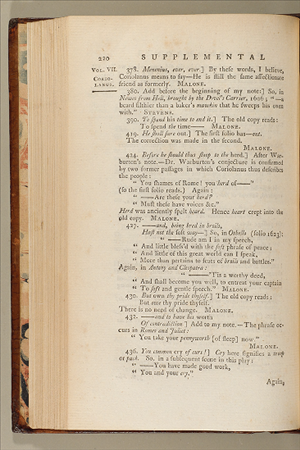 220 SUPPLEMENTAL
VOL. VII.
CORIO-
LANUS.
378. Menenius, ever, ever.] By these words, I believe,
Coriolanus means to say—He is still the same affectionate
friend as formerly. MALONE.
380. Add before the beginning of my note:] So, in
Newes from Hell, brought by the Divel's Carrier, 1606; "—a
beard filthier than a baker's maukin that he sweeps his oven
with." STEEVENS.
390. To spend his time to end it.] The old copy reads:
To spend the time— MALONE.
419. He shall sure out.] The first folio has—ont.
The correction was made in the second.
MALONE.
424. Before he should thus stoop to the herd.] After War-
burton's note.—Dr. Warburton's conjecture is confirmed
by two former passages in which Coriolanus thus describes
the people:
" You shames of Rome! you herd of—"
(so the first folio reads.) Again:
" —Are these your herd?
" Must these have voices &c."
Herd was anciently spelt heard. Hence heart crept into the
old copy. MALONE.
427. —and, being bred in broils,
Hast not the soft way—] So, in Othello (folio 1623):
" —Rude am I in my speech,
" And little bless'd with the soft phrase of peace;
" And little of this great world can I speak,
" More than pertains to feats of broils and battles."
Again, in Antony and Cleopatra:
" —'Tis a worthy deed,
" And shall become you well, to entreat your captain
" To soft and gentle speech." MALONE.
430. But own thy pride thyself.] The old copy reads:
But owe thy pride thyself.
There is no need of change. MALONE.
432. —and to have his worth
Of contradiction] Add to my note.—The phrase oc-
curs in Romeo and Juliet:
" You take your pennyworth [of sleep] now."
MALONE.
436. You common cry of curs!] Cry here signifies a troop
or pack. So, in a subsequent scene in this play:
" —You have made good work,
" You and your cry."
Again,